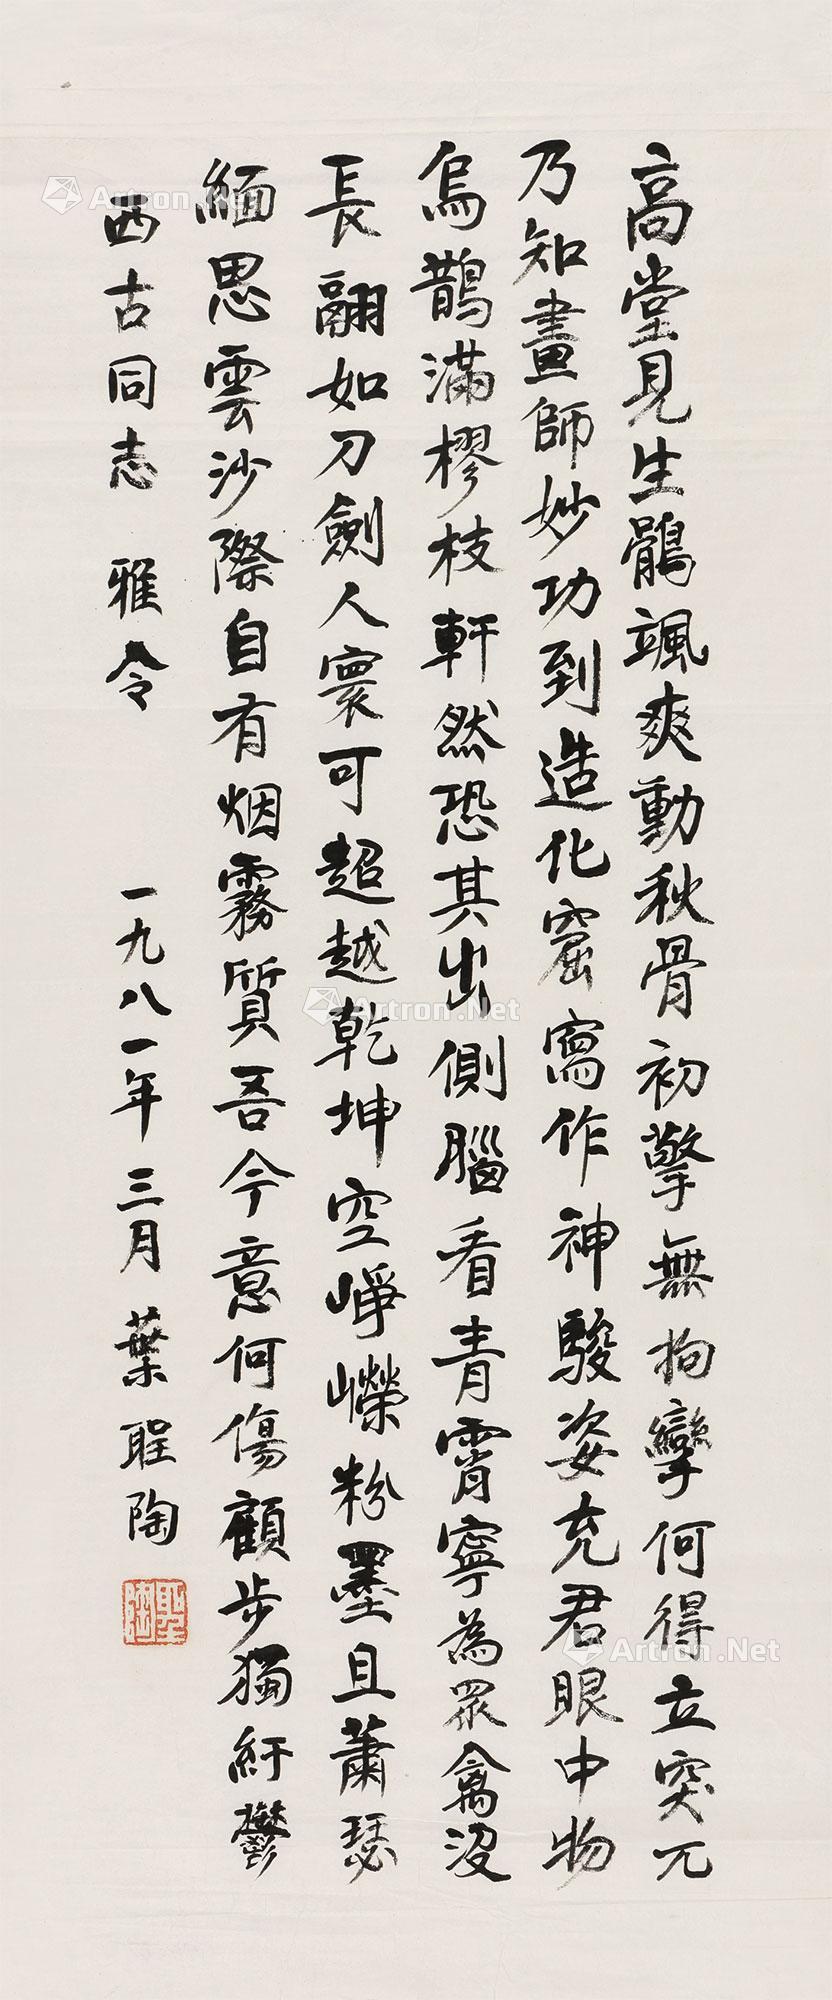 高堂見生鶻颯爽動秋骨初擎無拘攣何得立突兀
乃知畫師妙功到造化窟寫作神駿姿充君眼中物
烏鵲滿樛枝軒然恐其出側腦看青霄寧為眾禽沒
長翮如刀劍人寰可超越乾坤空崢嶸粉墨且蕭瑟
緬思雲沙際自有烟霧質吾今意何傷顧步獨紆鬱
西古同志 雅令 一九八一年三月 葉聖陶
聖陶
Artron.Net
Artron.Net
Artron.Net